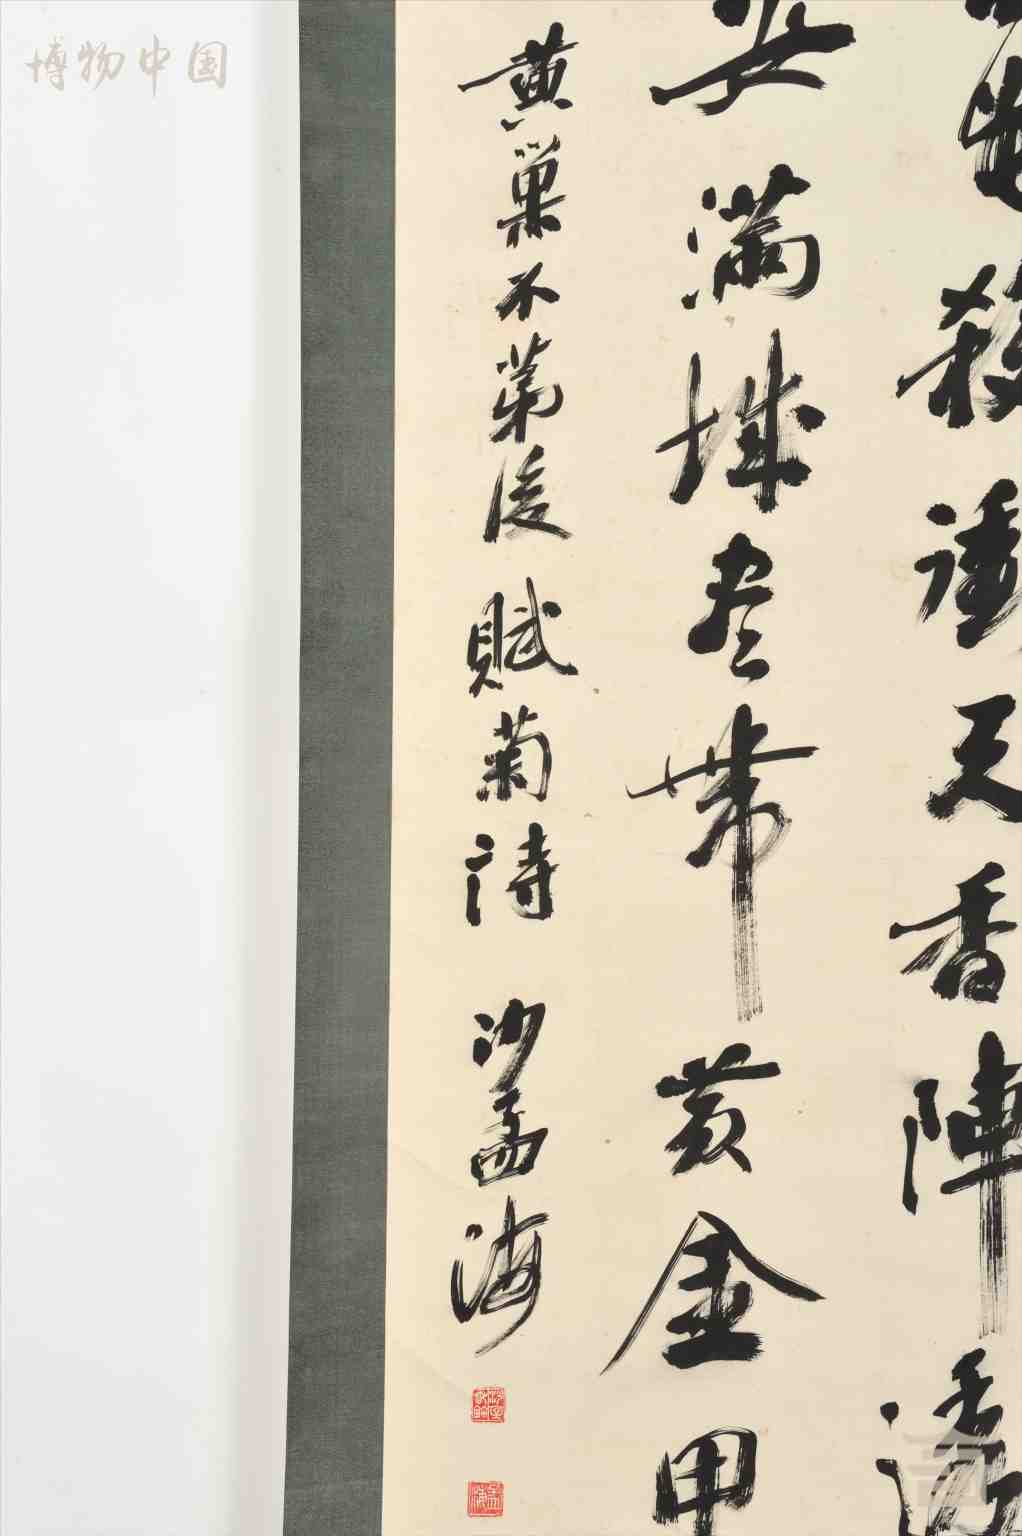 花殺衝天香陣透
安滿城盡帶黃金甲
黃巢不第後賦菊詩 沙孟海
博物中国